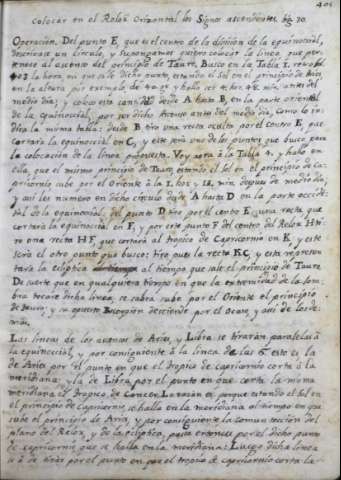 401
Colocar en el Relox Orizontal los Signos ascendentes. fig. 30.
Operación. Del punto E, que es el centro de la division de la equinoccial,
descrivase un circulo, y supongamos quiero colocar la linea, que per-
tenece al ascenso del principio de Tauro. Busco en la Tabla 1.
403 la hora, en que sube dicho punto, estando el Sol en el principio de Aries
en la altura por exemplo de 40. gr. y hallo ser 4. hor. 48. min. antes del
medio dia; y coloco esta cantidad desde A hasta B, en la parte oriental
de la equinoccial, por ser dicho Arcuto antes del medio dia, como lo in-
dica la misma tabla: desde B tiro una recta oculta por el centro E, que
cortarà la equinoccial en C, y este serà uno de los puntos que busco para
la colocación de la linea propuesta. Voy aora à la Tabla 4. y hallo en
ella, que el mismo principio de Tauro, estando el Sol en el principio de Ca-
pricornio sube por el Oriente à la 1. hor. y 12. min. despues de medio dia,
y assi los numero en dicho circulo desde A hasta D en la parte occide-
tal de la equinoccial: del punto D tiro por el centro E una recta que
cortarà la equinoccial en F, y por este punto F del centro del Relox H ti-
ro una recta HF, que cortarà al tropico de Capricornio en K y este
serà el otro punto que busco: tiro pues la recta KC, y esta represen-
tarà la ecliptica al tiempo que sale el principio de Tauro.
De suerte que en qualquiera tiempo en que la extremidad de la Som-
bra tocare dicha linea, se sabrà sube por el Oriente el principio
de Tauro; y su opuesto Escorpion desciende por el Ocaso, y assi de los de-
mas.
Las lineas de los ascensos de Aries, y Libra se tiraràn paralelas à
la equinoccial, y por consiguiente à la linea de las 6. esto es, la
de Aries por el punto en que el tropico de capricornio corta à la
meridiana; y la de Libra por el punto en que corta la misma
meridiana el tropico de Cancer. La razon es, porque estando el Sol en
el principio de Capricornio se halla en la meridiana al tiempo en que
sube el principio de Aries, y por consiguiente la comun seccion del
plano del Relox, y de la ecliptica, passa entonces por el dicho punto
de capricornio que se halla en la meridiana: Luego dicha linea
se à de tirar por el punto en que el tropico de capricornio corta la